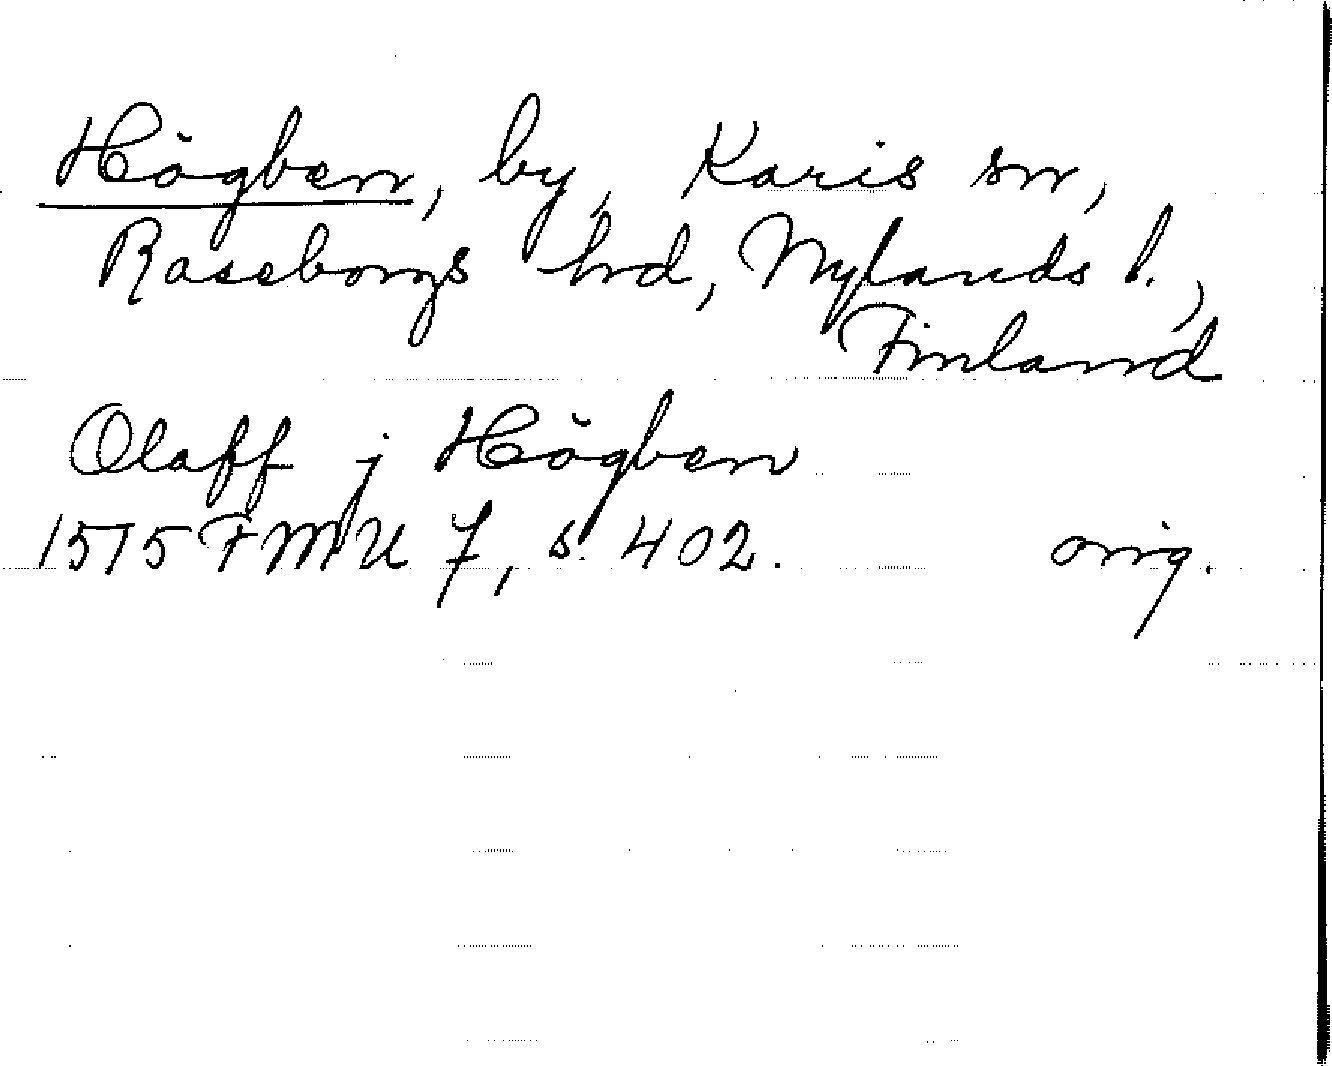 Högben, by, Karis sn,
Raseborgs hrd, Nylands l.,
Finland
Olaff j Högben
1515 FMU 7, s. 402. orig.